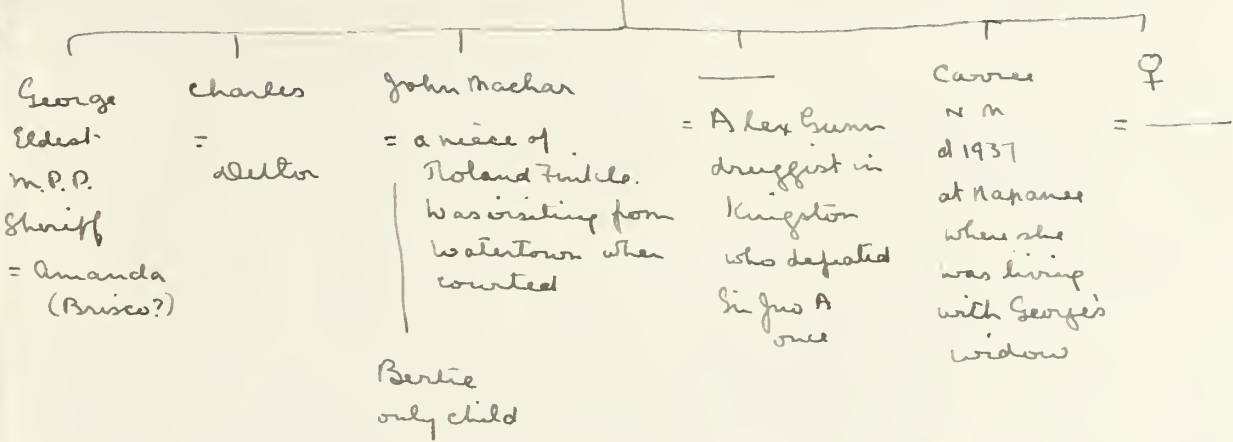 George
Eldest
M.P.P.
Sheriff
= Amanda
(Brisco?)
Charles
=
John Machar
= a niece of
Roland Finkle.
Was visiting from
Watertown when
courted
Bertie
only child
= Alex Gunn
druggist in
Kingston
who defeated
Sir Jno A
once
Carree
N M
d 1937
at Napanee
where she
was living
with George's
widow
♀
=